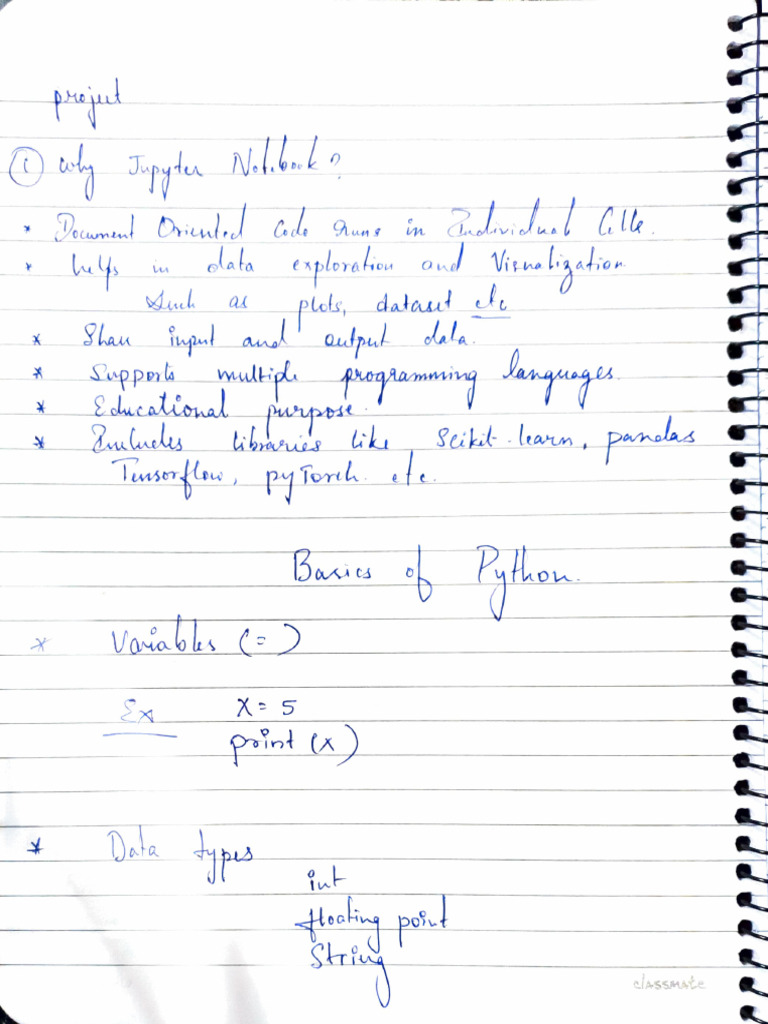 project
(i) Why Jupyter Notebook?
* Document Oriented Code runs in Individual Cells.
* helps in data exploration and Visualization
Such as plots, dataset etc
* Share input and output data.
* Supports multiple programming languages.
* Educational purpose.
* Includes libraries like Scikit-learn, pandas
Tensorflow, pyTorch. etc.
Basics of Python.
* Variables (=)
Ex x = 5
print (x)
* Data types
int
floating point
String
classmate